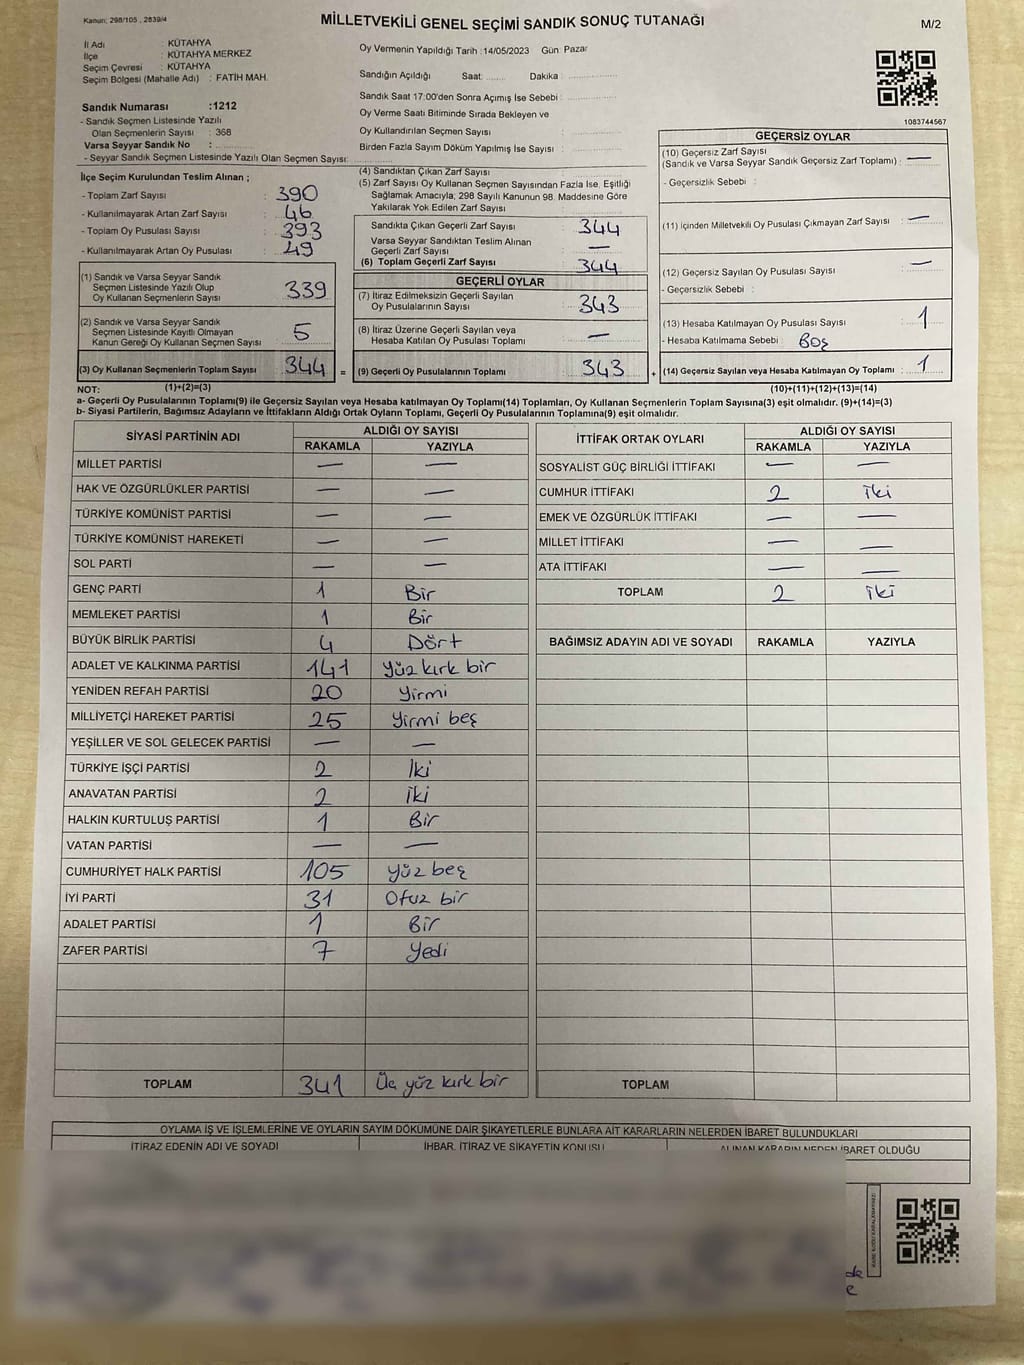 Kanun: 298/105 , 2839/4
MİLLETVEKİLİ GENEL SEÇİMİ SANDIK SONUÇ TUTANAĞI
M/2
İl Adı : KÜTAHYA
İlçe : KÜTAHYA MERKEZ
Seçim Çevresi : KÜTAHYA
Seçim Bölgesi (Mahalle Adı) : FATİH MAH.
Sandık Numarası :1212
- Sandık Seçmen Listesinde Yazılı
Olan Seçmenlerin Sayısı : 368
Varsa Seyyar Sandık No :
- Seyyar Sandık Seçmen Listesinde Yazılı Olan Seçmen Sayısı:
Oy Vermenin Yapıldığı Tarih :14/05/2023 Gün: Pazar
Sandığın Açıldığı Saat: Dakika :
Sandık Saat 17:00'den Sonra Açımış İse Sebebi :
Oy Verme Saati Bitiminde Sırada Bekleyen ve
Oy Kullandırılan Seçmen Sayısı :
Birden Fazla Sayım Döküm Yapılmış İse Sayısı :
1083744567
İlçe Seçim Kurulundan Teslim Alınan ;
- Toplam Zarf Sayısı : 390
- Kullanılmayarak Artan Zarf Sayısı : 46
- Toplam Oy Pusulası Sayısı : 393
- Kullanılmayarak Artan Oy Pusulası : 49
(1) Sandık ve Varsa Seyyar Sandık
Seçmen Listesinde Yazılı Olup
Oy Kullanan Seçmenlerin Sayısı : 339
(2) Sandık ve Varsa Seyyar Sandık
Seçmen Listesinde Kayıtlı Olmayan
Kanun Gereği Oy Kullanan Seçmen Sayısı : 5
(3) Oy Kullanan Seçmenlerin Toplam Sayısı : 344 =
(4) Sandıktan Çıkan Zarf Sayısı :
(5) Zarf Sayısı Oy Kullanan Seçmen Sayısından Fazla İse, Eşitliği
Sağlamak Amacıyla; 298 Sayılı Kanunun 98. Maddesine Göre
Yakılarak Yok Edilen Zarf Sayısı :
Sandıkta Çıkan Geçerli Zarf Sayısı : 344
Varsa Seyyar Sandıktan Teslim Alınan
Geçerli Zarf Sayısı : —
(6) Toplam Geçerli Zarf Sayısı : 344
GEÇERLİ OYLAR
(7) İtiraz Edilmeksizin Geçerli Sayılan
Oy Pusulalarının Sayısı : 343
(8) İtiraz Üzerine Geçerli Sayılan veya
Hesaba Katılan Oy Pusulası Toplamı : —
(9) Geçerli Oy Pusulalarının Toplamı : 343 +
GEÇERSİZ OYLAR
(10) Geçersiz Zarf Sayısı
(Sandık ve Varsa Seyyar Sandık Geçersiz Zarf Toplamı) : —
- Geçersizlik Sebebi :
(11) İçinden Milletvekili Oy Pusulası Çıkmayan Zarf Sayısı : —
(12) Geçersiz Sayılan Oy Pusulası Sayısı : —
- Geçersizlik Sebebi :
(13) Hesaba Katılmayan Oy Pusulası Sayısı : 1
- Hesaba Katılmama Sebebi : Boş
(14) Geçersiz Sayılan veya Hesaba Katılmayan Oy Toplamı : 1
NOT: (1)+(2)=(3) (10)+(11)+(12)+(13)=(14)
a- Geçerli Oy Pusulalarının Toplamı(9) ile Geçersiz Sayılan veya Hesaba katılmayan Oy Toplamı(14) Toplamları, Oy Kullanan Seçmenlerin Toplam Sayısına(3) eşit olmalıdır. (9)+(14)=(3)
b- Siyasi Partilerin, Bağımsız Adayların ve İttifakların Aldığı Ortak Oyların Toplamı, Geçerli Oy Pusulalarının Toplamına(9) eşit olmalıdır.
SİYASİ PARTİNİN ADI ALDIĞI OY SAYISI
RAKAMLA YAZIYLA
MİLLET PARTİSİ — —
HAK VE ÖZGÜRLÜKLER PARTİSİ — —
TÜRKİYE KOMÜNİST PARTİSİ — —
TÜRKİYE KOMÜNİST HAREKETİ — —
SOL PARTİ — —
GENÇ PARTİ 1 Bir
MEMLEKET PARTİSİ 1 Bir
BÜYÜK BİRLİK PARTİSİ 4 Dört
ADALET VE KALKINMA PARTİSİ 141 Yüz kırk bir
YENİDEN REFAH PARTİSİ 20 Yirmi
MİLLİYETÇİ HAREKET PARTİSİ 25 Yirmi beş
YEŞİLLER VE SOL GELECEK PARTİSİ — —
TÜRKİYE İŞÇİ PARTİSİ 2 İki
ANAVATAN PARTİSİ 2 İki
HALKIN KURTULUŞ PARTİSİ 1 Bir
VATAN PARTİSİ — —
CUMHURİYET HALK PARTİSİ 105 Yüz beş
İYİ PARTİ 31 Otuz bir
ADALET PARTİSİ 1 Bir
ZAFER PARTİSİ 7 Yedi
TOPLAM 341 Üç yüz kırk bir
İTTİFAK ORTAK OYLARI ALDIĞI OY SAYISI
RAKAMLA YAZIYLA
SOSYALİST GÜÇ BİRLİĞİ İTTİFAKI — —
CUMHUR İTTİFAKI 2 İki
EMEK VE ÖZGÜRLÜK İTTİFAKI — —
MİLLET İTTİFAKI — —
ATA İTTİFAKI — —
TOPLAM 2 İki
BAĞIMSIZ ADAYIN ADI VE SOYADI RAKAMLA YAZIYLA
TOPLAM
OYLAMA İŞ VE İŞLEMLERİNE VE OYLARIN SAYIM DÖKÜMÜNE DAİR ŞİKAYETLERLE BUNLARA AİT KARARLARIN NELERDEN İBARET BULUNDUKLARI
İTİRAZ EDENİN ADI VE SOYADI İHBAR, İTİRAZ VE ŞİKAYETİN KONUSU ALINAN KARARIN NEDEN İBARET OLDUĞU